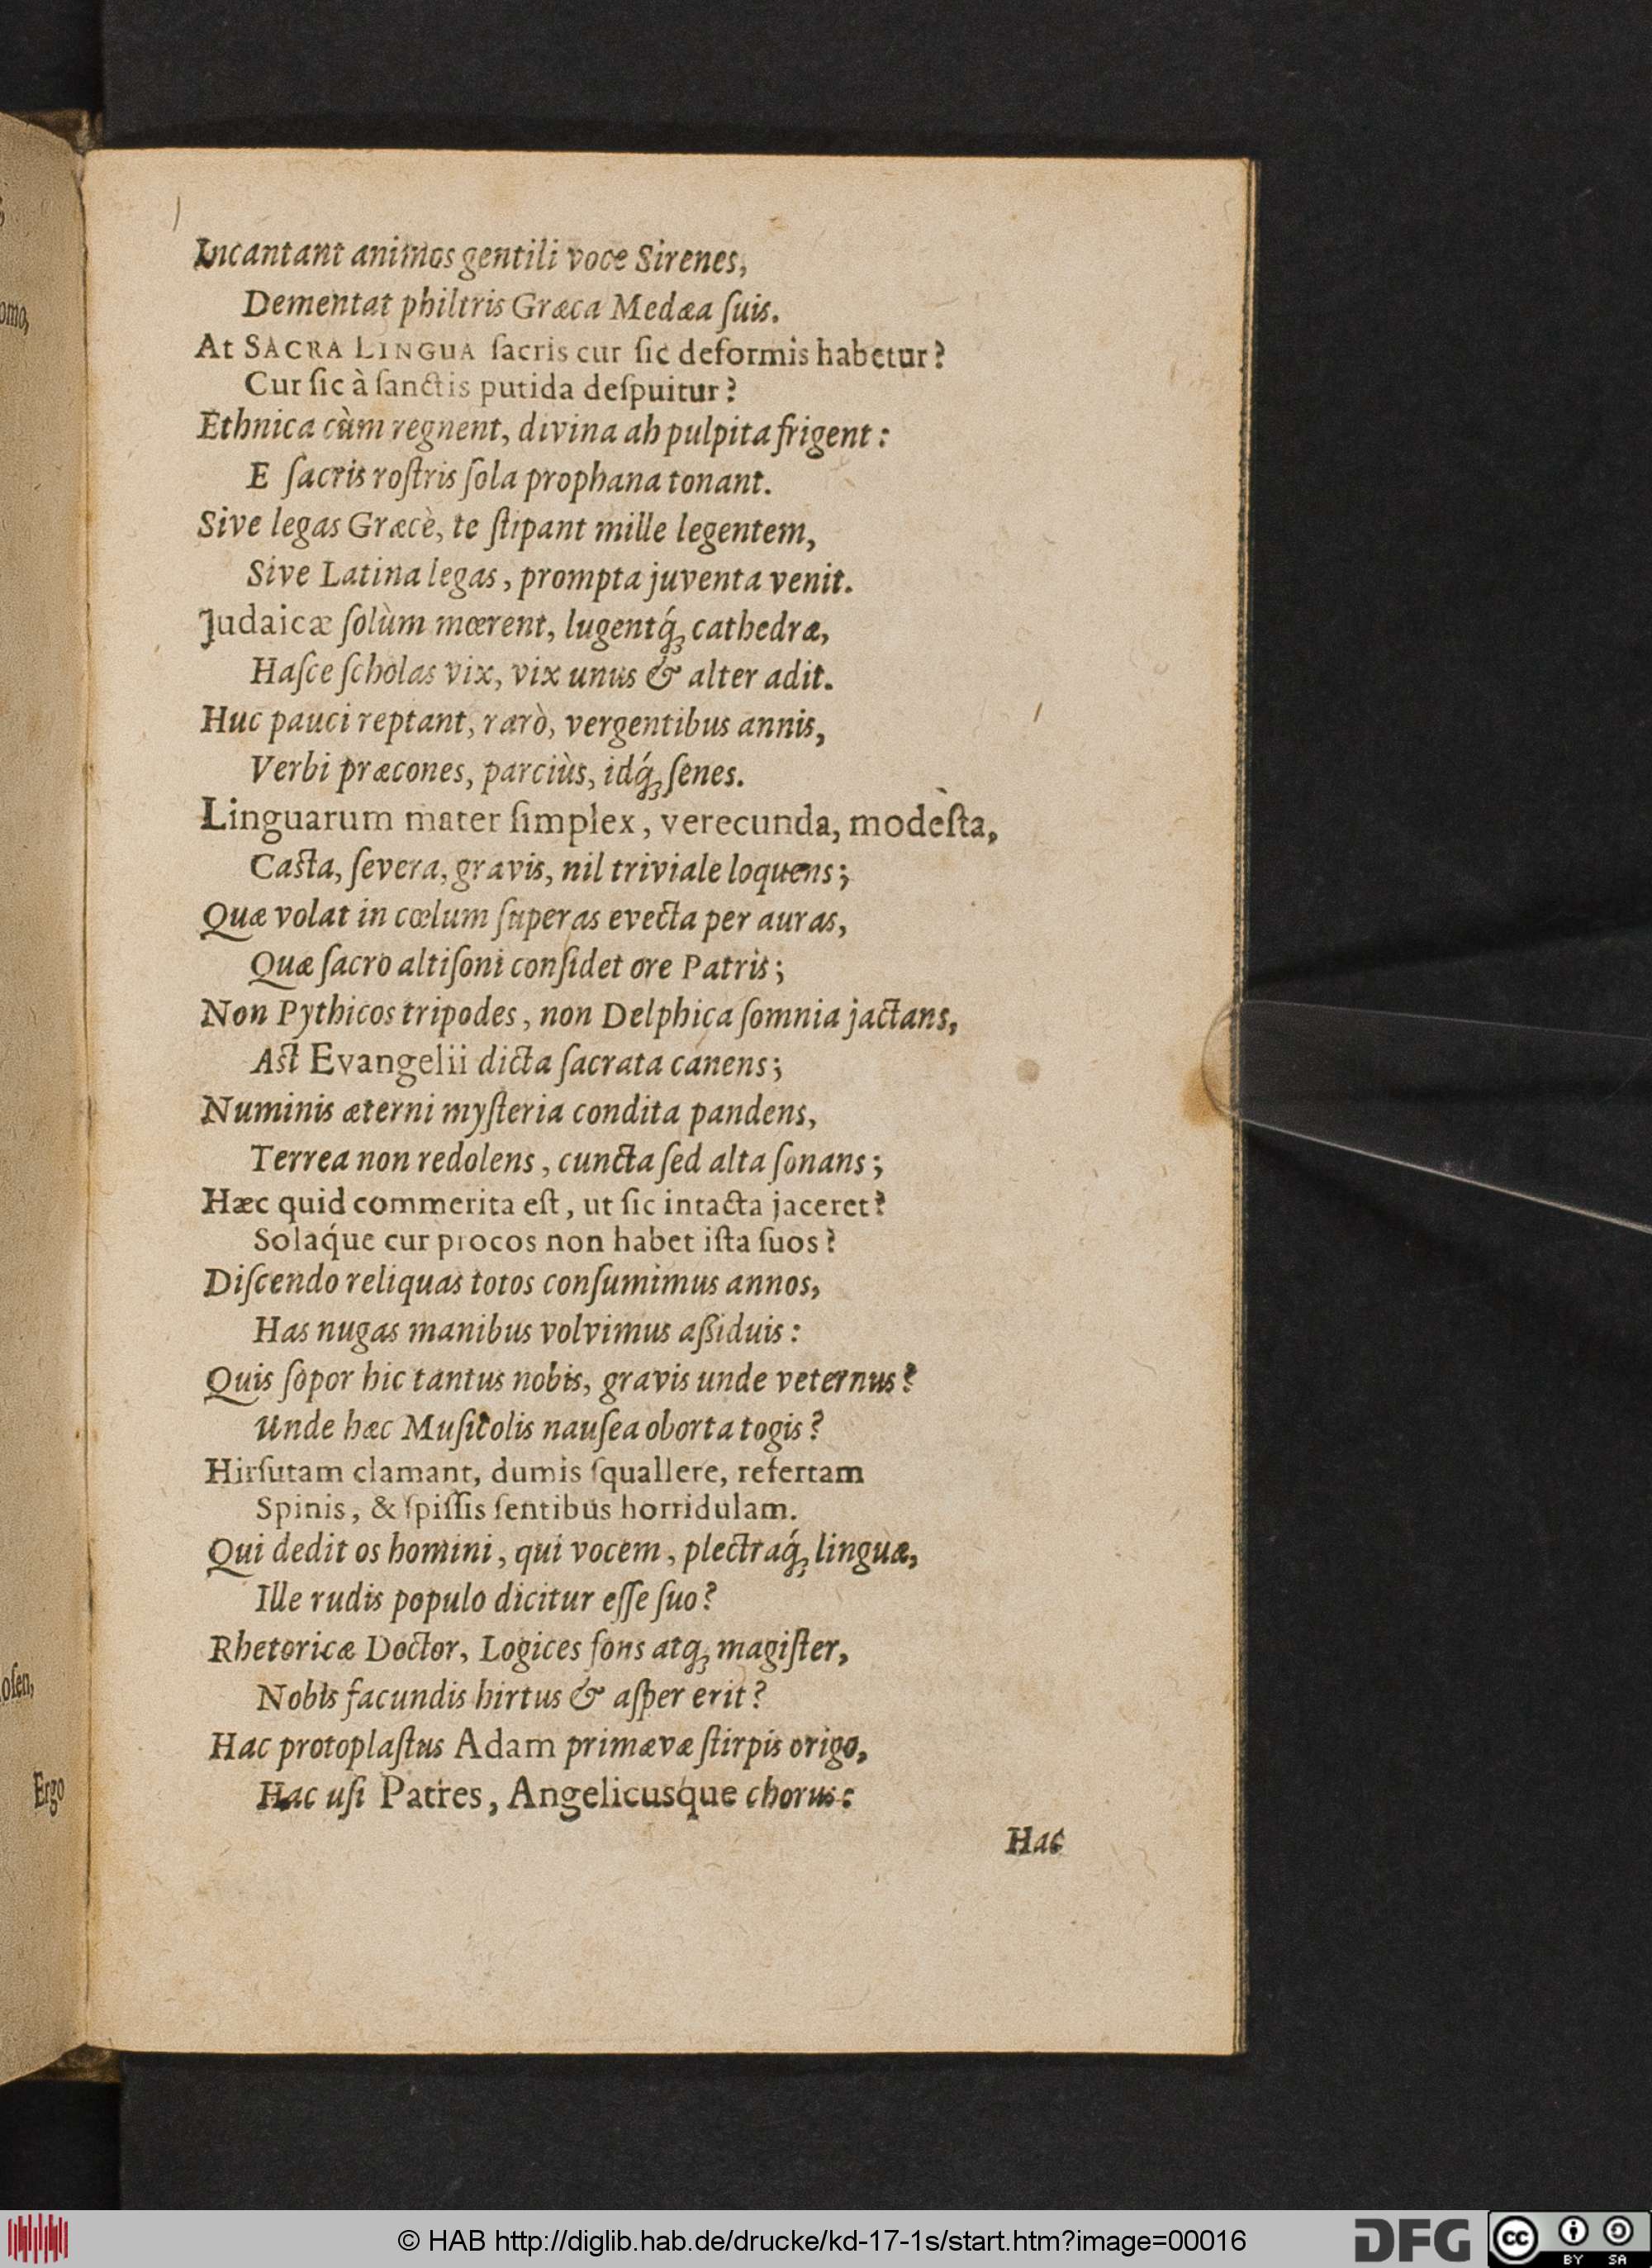 Incantant animos gentili voce Sirenes,
Dementat philtris Græca Medæa ſuis.
At SACRA LINGUA ſacris cur ſic deformis habetur?
Cur ſic à ſanctis putida deſpuitur?
Ethnica cùm regnent, divina ah pulpita frigent:
E ſacris roſtris ſola prophana tonant.
Sive legas Græcè, te ſtipant mille legentem,
Sive Latina legas, prompta juventa venit.
Judaicæ ſolùm mœrent, lugentq́ꝫ cathedræ,
Haſce ſcholas vix, vix unus & alter adit.
Huc pauci reptant, rarò, vergentibus annis,
Verbi præcones, parciùs, idq́ꝫ ſenes.
Linguarum mater ſimplex, verecunda, modeſta,
Caſta, ſevera, gravis, nil triviale loquens;
Quæ volat in cœlum ſuperas evecta per auras,
Quæ ſacro altiſoni conſidet ore Patris;
Non Pythicos tripodes, non Delphica ſomnia jactans,
Aſt Evangelii dicta ſacrata canens;
Numinis æterni myſteria condita pandens,
Terrea non redolens, cuncta ſed alta ſonans;
Hæc quid commerita eſt, ut ſic intacta jaceret?
Solaq́ue cur procos non habet iſta ſuos?
Diſcendo reliquas totos conſumimus annos,
Has nugas manibus volvimus aßiduis:
Quis ſopor hic tantus nobis, gravis unde veternus?
Unde hæc Muſicolis nauſea oborta togis?
Hirſutam clamant, dumis ſquallere, refertam
Spinis, & ſpiſſis ſentibus horridulam.
Qui dedit os homini, qui vocem, plectraq́ꝫ linguæ,
Ille rudis populo dicitur eſſe ſuo?
Rhetoricæ Doctor, Logices fons atqꝫ magiſter,
Nobis facundis hirtus & aſper erit?
Hac protoplaſtus Adam primævæ ſtirpis origo,
Hac uſi Patres, Angelicusque chorus:
Hac
omo,
oſen,
Ergo
© HAB http://diglib.hab.de/drucke/kd-17-1s/start.htm?image=00016
DFG
cc
BY SA